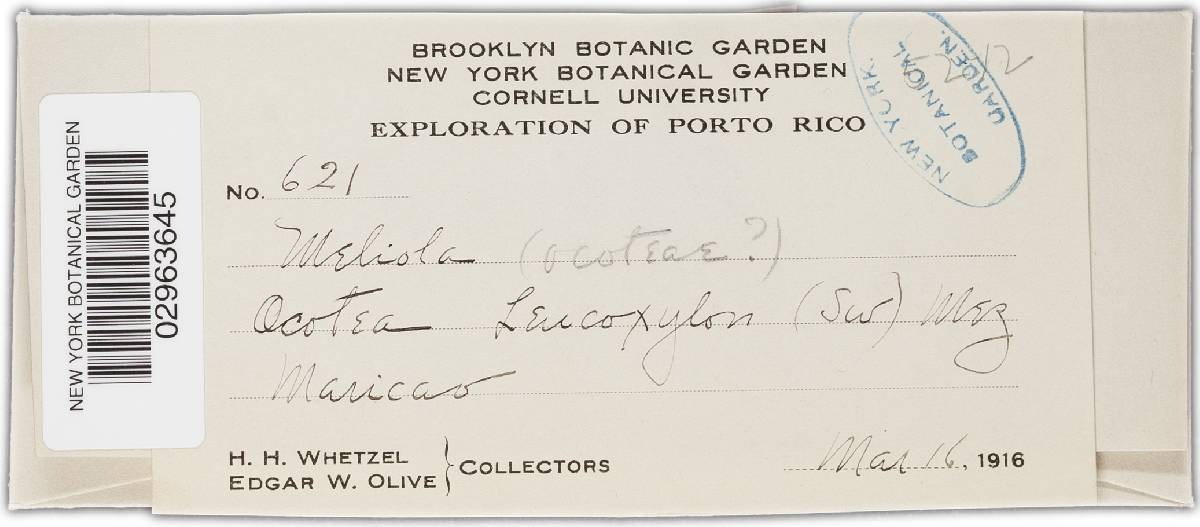 BROOKLYN BOTANIC GARDEN
NEW YORK BOTANICAL GARDEN
CORNELL UNIVERSITY
EXPLORATION OF PORTO RICO
NEW YORK
BOTANICAL
GARDEN.
No. 621
Meliola (ocoteae?)
Ocotea Leucoxylon (Sw) Mez
Maricao
H. H. WHETZEL
EDGAR W. OLIVE } COLLECTORS
Mar 16, 1916
NEW YORK BOTANICAL GARDEN
02963645